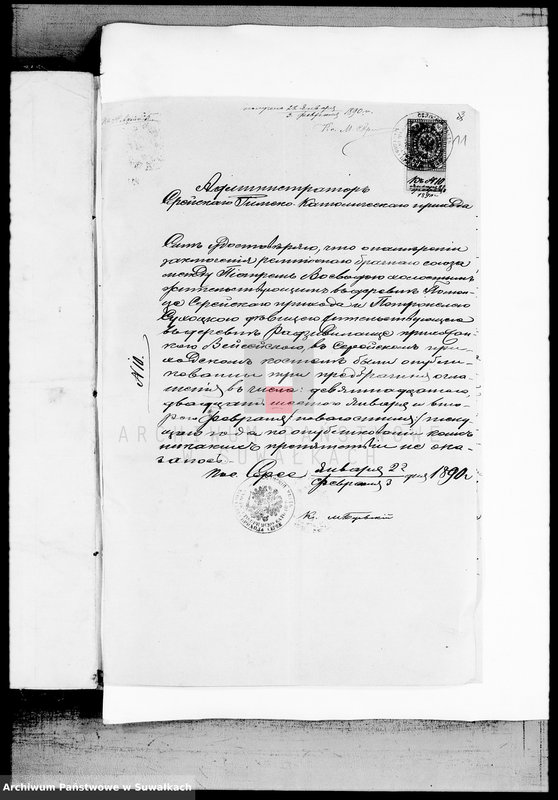 получено 22 Января
3 Февраля 1890 г.
Кс. М.
11
Администраторъ
Сѣрейскаго Римско-Католическаго прихода
Симъ удостовѣряю, что о намѣреніи
заключенія религіознаго брачнаго союза
между Петромъ Воеводою холостымъ
жительствующимъ въ деревнѣ
Серейскаго прихода и
Сухоцкою дѣвицею жительствующею
въ деревнѣ Радзивилишце прихо
скаго Вейсейскаго, въ Серейскомъ при-
ходскомъ костелѣ были опубли-
кованы три предбрачныя огла-
шенія въ числа: девятнадцатаго,
двадцать шестого Января и вто-
раго Февраля /новаго стиля/ теку-
щаго года по опубликованіи коихъ
никакихъ препятствій не ока-
залось.
Пос. Сереѣ Января 22
Февраля 3 дня 1890 г.
Кс.
№ 10.
ARCHIWUM PAŃSTWOWE
W SUWAŁKACH
Archiwum Państwowe w Suwałkach